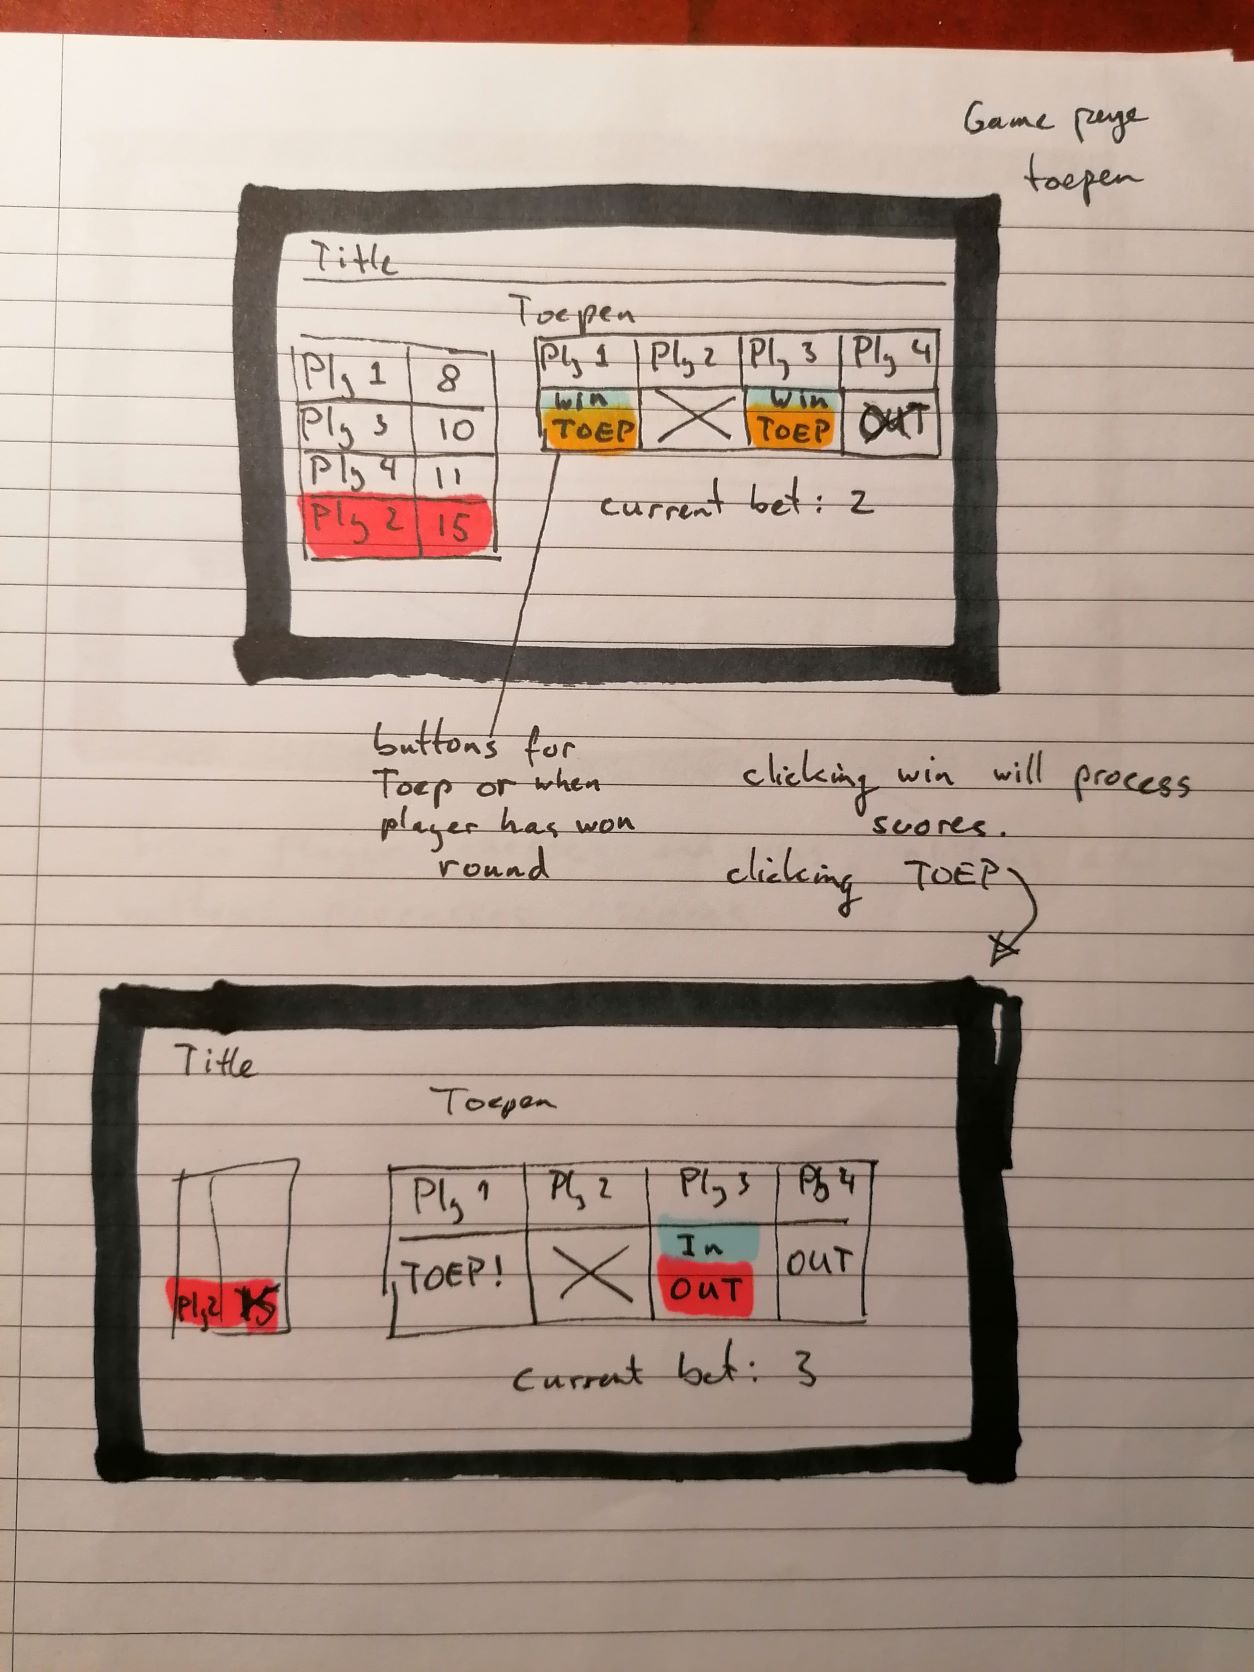 Game page
toepen
Title
Toepen
Ply 1 8
Ply 3 10
Ply 4 11
Ply 2 15
Ply 1 Ply 2 Ply 3 Ply 4
win win
TOEP TOEP OUT
current bet: 2
buttons for
Toep or when
player has won
round
clicking win will process
scores.
clicking TOEP
Title
Toepen
Ply 2 15
Ply 1 Ply 2 Ply 3 Ply 4
TOEP! In OUT
OUT
current bet: 3